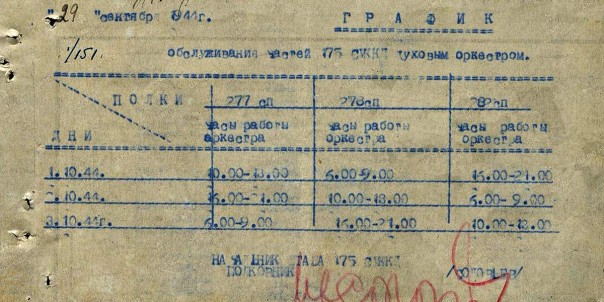 "29 "сентября 1944г. ГРАФИК
1/151.
обслуживания частей 175 СУККД духовым оркестром.
ПОЛКИ 277 сп 278сп 282сп
ДНИ часы работы оркестра часы работы оркестра часы работы оркестра
1.10.44. 10.00-13.00 6.00-9.00 16.00-21.00
2.10.44. 16.00-21.00 10.00-13.00 6.00- 9.00
3.10.44г. 6.00-9.00 16.00-21.00 10.00-13.00
НАЧАЛЬНИК ШТАБА 175 СУККД
ПОЛКОВНИК